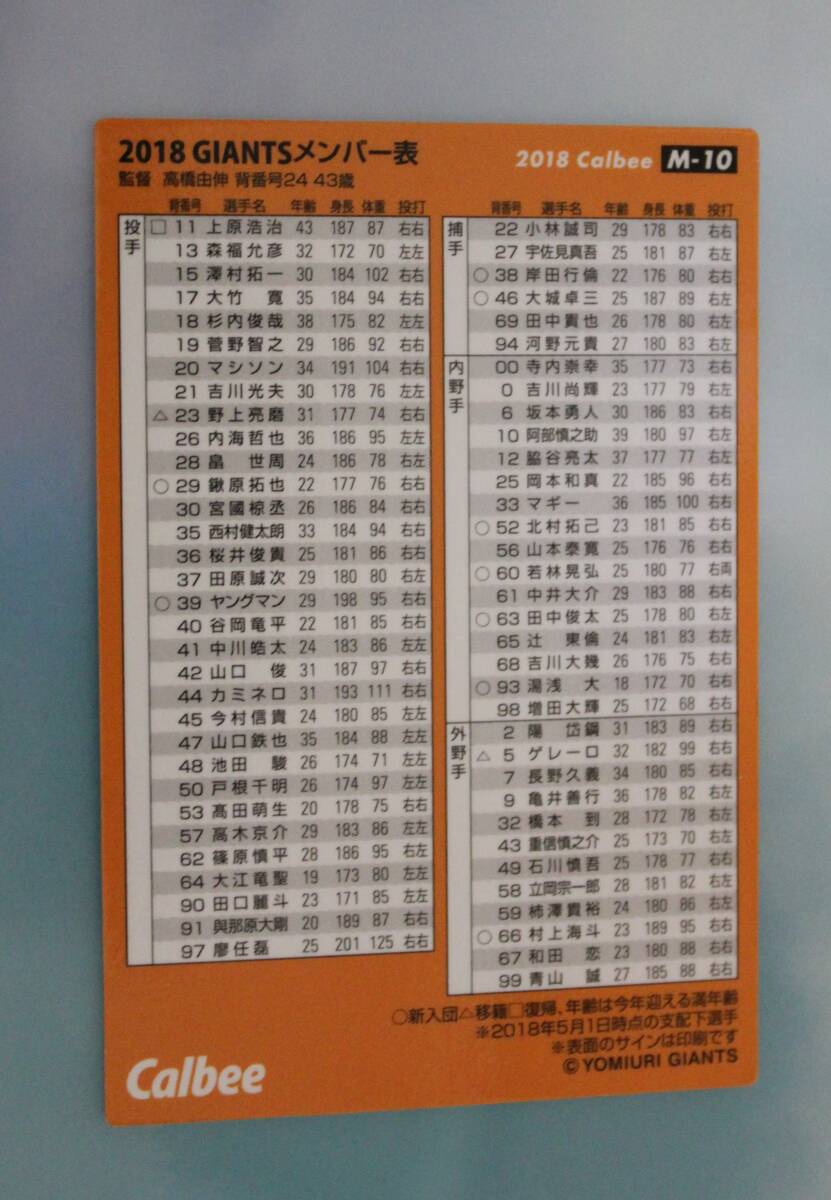 2018 GIANTSメンバー表
2018 Calbee M-10
監督 高橋由伸 背番号24 43歳
背番号 選手名 年齢 身長 体重 投打
投手
□ 11 上原浩治 43 187 87 右右
13 森福允彦 32 172 70 左左
15 澤村拓一 30 184 102 右右
17 大竹 寛 35 184 94 右右
18 杉内俊哉 38 175 82 左左
19 菅野智之 29 186 92 右右
20 マシソン 34 191 104 右右
21 吉川光夫 30 178 76 左左
△ 23 野上亮磨 31 177 74 右右
26 内海哲也 36 186 95 左左
28 畠 世周 24 186 78 右左
○ 29 鍬原拓也 22 177 76 右右
30 宮國椋丞 26 186 84 右右
35 西村健太朗 33 184 94 右右
36 桜井俊貴 25 181 86 右右
37 田原誠次 29 180 80 右左
○ 39 ヤングマン 29 198 95 右右
40 谷岡竜平 22 181 85 右右
41 中川皓太 24 183 86 左左
42 山口 俊 31 187 97 右右
44 カミネロ 31 193 111 右右
45 今村信貴 24 180 85 左左
47 山口鉄也 35 184 88 左左
48 池田 駿 26 174 71 左左
50 戸根千明 26 174 97 左左
53 髙田萌生 20 178 75 右右
57 高木京介 29 183 86 左左
62 篠原慎平 28 186 95 右左
64 大江竜聖 19 173 80 左左
90 田口麗斗 23 171 85 左左
91 與那原大剛 20 189 87 右右
97 廖任磊 25 201 125 右右
背番号 選手名 年齢 身長 体重 投打
捕手
22 小林誠司 29 178 83 右右
27 宇佐見真吾 25 181 87 右左
○ 38 岸田行倫 22 176 80 右右
○ 46 大城卓三 25 187 89 右左
69 田中貴也 26 178 80 右左
94 河野元貴 27 180 83 右左
内野手
00 寺内崇幸 35 177 73 右右
0 吉川尚輝 23 177 79 右左
6 坂本勇人 30 186 83 右右
10 阿部慎之助 39 180 97 右左
12 脇谷亮太 37 177 77 右左
25 岡本和真 22 185 96 右右
33 マギー 36 185 100 右右
○ 52 北村拓己 23 181 85 右右
56 山本泰寛 25 176 76 右右
○ 60 若林晃弘 25 180 77 右両
61 中井大介 29 183 88 右右
○ 63 田中俊太 25 178 80 右左
65 辻 東倫 24 181 83 右左
68 吉川大幾 26 176 75 右右
○ 93 湯浅 大 18 172 70 右右
98 増田大輝 25 172 68 右右
外野手
2 陽 岱鋼 31 183 89 右右
△ 5 ゲレーロ 32 182 99 右右
7 長野久義 34 180 85 右右
9 亀井善行 36 178 82 右左
32 橋本 到 28 172 78 右左
43 重信慎之介 25 173 70 右左
49 石川慎吾 25 178 77 右右
58 立岡宗一郎 28 181 82 右左
59 柿澤貴裕 24 180 86 右左
○ 66 村上海斗 23 189 95 右右
67 和田 恋 23 180 88 右右
99 青山 誠 27 185 88 右右
○新入団△移籍□復帰、年齢は今年迎える満年齢
※2018年5月1日時点の支配下選手
※表面のサインは印刷です
©YOMIURI GIANTS
Calbee